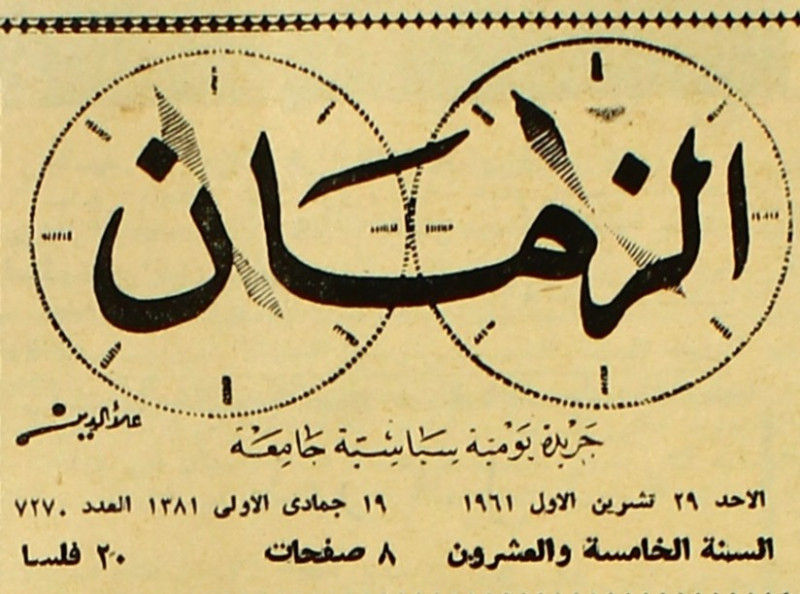 الزمان
علاء الدين
جريدة يومية سياسية جامعة
الاحد ٢٩ تشرين الاول ١٩٦١ ١٩ جمادى الاولى ١٣٨١ العدد ٧٢٧٠
السنة الخامسة والعشرون ٨ صفحات ٢٠ فلسا